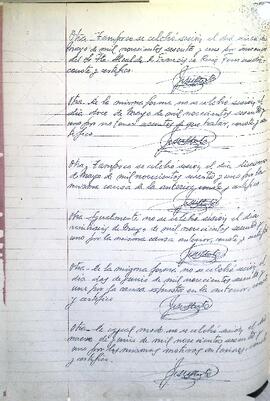 Otra - Tampoco se celebró sesión el día cinco de
mayo de mil novecientos sesenta y uno por
del Sr. Alcalde D. Francisco
conste y certifico
Otra - De la misma forma no se celebró sesión el
día doce de Mayo de mil novecientos sesenta y
uno por no tener asuntos que tratar, conste y
certifico
Otra, Tampoco se celebró sesión, el día diecinueve
de Mayo de mil novecientos sesenta y uno por la
misma causa de la anterior, conste y certifico
Otra - Igualmente no se celebró sesión el día
veintiseis de Mayo de mil novecientos sesenta y
uno por la misma causa anterior, conste y certifico
Otra - De la misma forma no se celebró sesión el
día dos de Junio de mil novecientos sesenta y
uno por la causa expuesta en la anterior, conste
y certifico
Otra - De igual modo no se celebró sesión, el día
nueve de Junio de mil novecientos sesenta y
uno por los mismos motivos anteriores, conste
y certifico